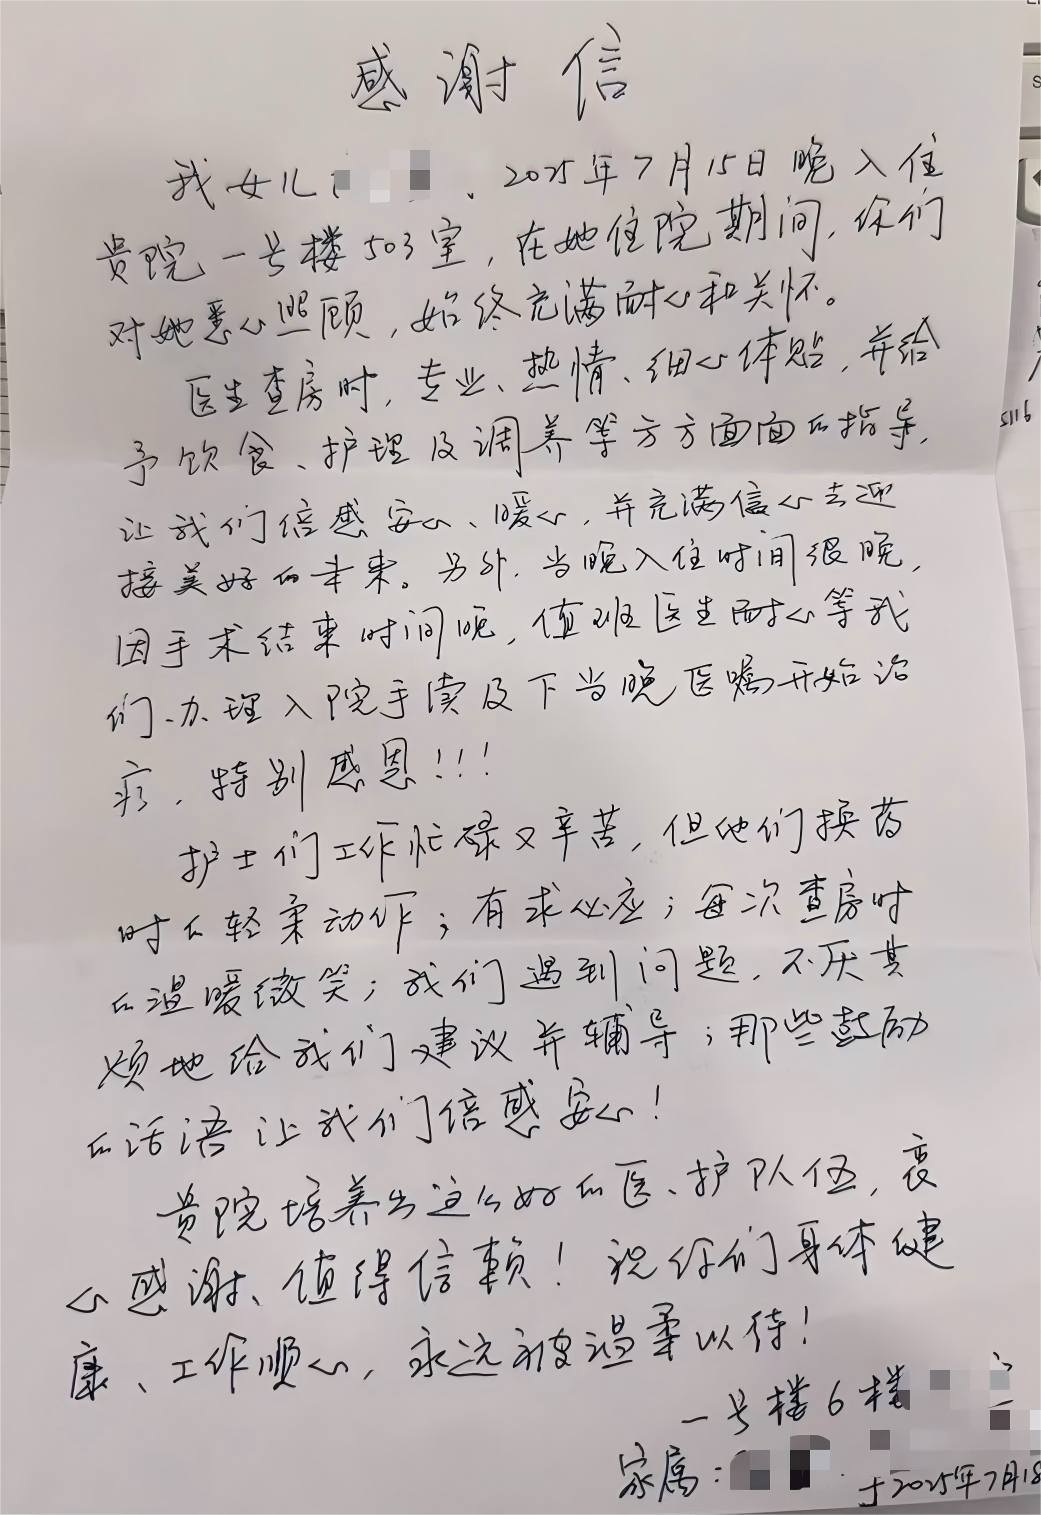 感谢信
我女儿 、2025年7月15日晚入住
贵院一号楼503室，在她住院期间，你们
对她悉心照顾，始终充满耐心和关怀。
医生查房时，专业、热情、细心体贴，并给
予饮食、护理及调养等方方面面的指导，
让我们倍感安心、暖心，并充满信心去迎
接美好的未来。另外，当晚入住时间很晚，
因手术结束时间晚，值班医生耐心等我
们、办理入院手续及下当晚医嘱开始治
疗，特别感恩！！！
护士们工作忙碌又辛苦，但他们换药
时的轻柔动作；有求必应；每次查房时
的温暖微笑；我们遇到问题，不厌其
烦地给我们建议并辅导；那些鼓励
的话语让我们倍感安心！
贵院培养出这么好的医、护队伍，衷
心感谢、值得信赖！祝你们身体健
康、工作顺心，永远被温柔以待！
一号楼6楼
家属：
于2025年7月18
5116